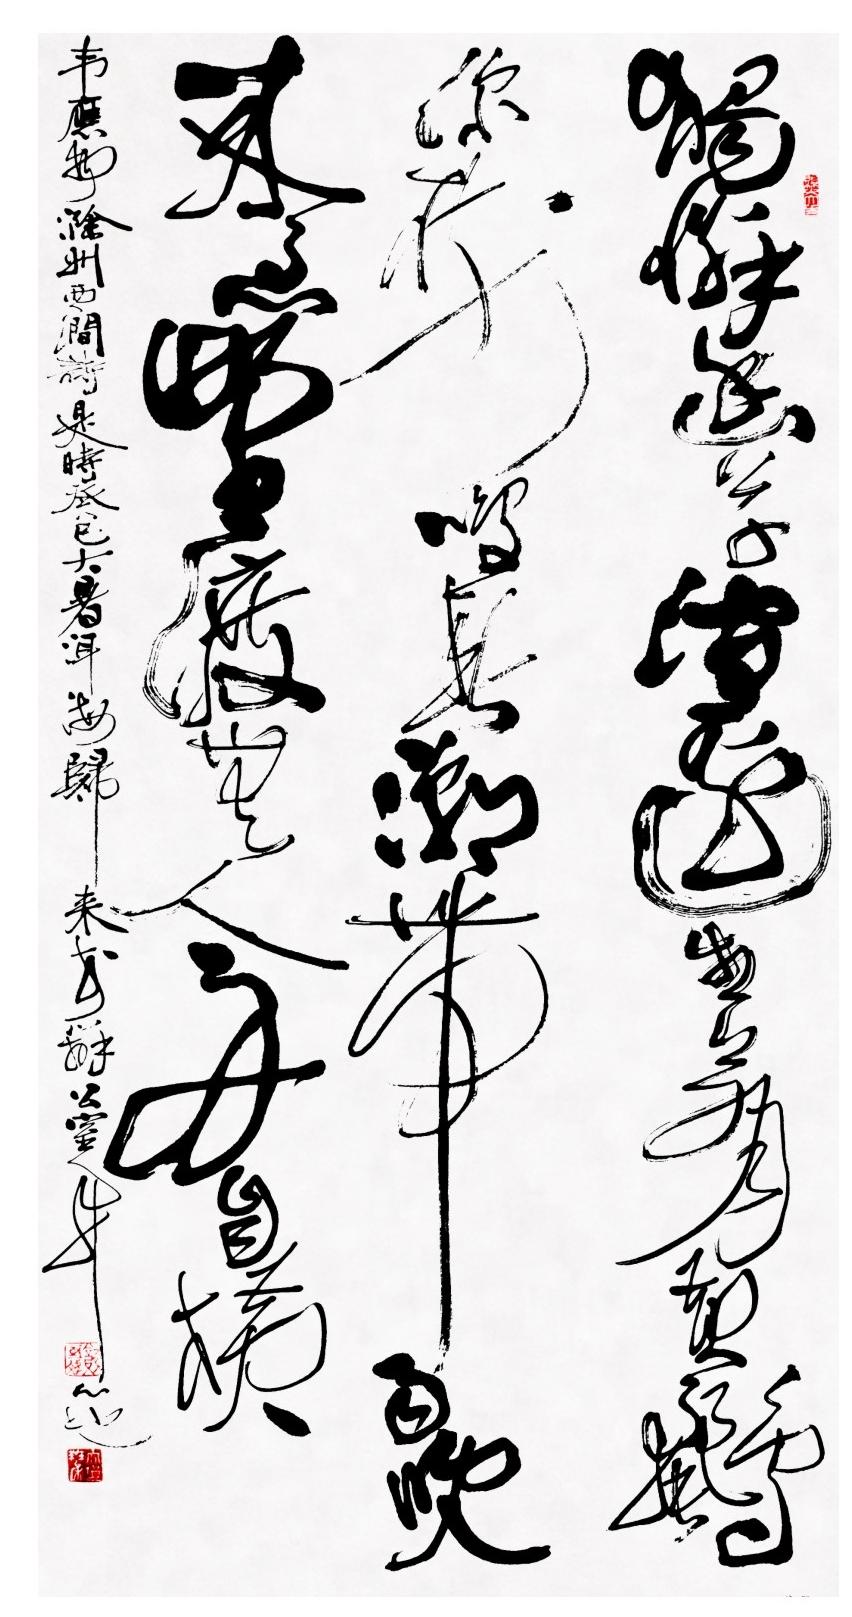 獨憐幽草澗邊生上有黃鸝
深樹鳴春潮帶雨晚
来急野渡無人舟自橫
韦應物滁州西澗詩是時癸巳大暑洱海歸来於